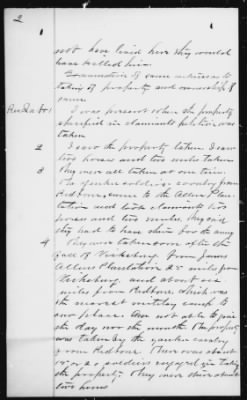 2
not have lived here they would
have killed him.
Examination of same witness as to
taking of property and ownership of
same
1 I was present when the property
specified in claimants petition was
taken
2 I saw the property taken I saw
two horses and two mules taken
3 They were all taken at one time
The Yankee soldiers cavalry from
Redbone came to the Allen Plan-
tation and took claimants two
horses and two mules. They said
they had to have them for the army
4 They were taken soon after the
fall of Vicksburg. from James
Allens Plantation 25 miles from
Vicksburg. and about six
miles from Redbone. which was
the nearest military camp to
our place. Am not able to give
the day nor the month. The property
was taken by the yankee cavalry
from Redbone. There was about
soldiers engaged in taking
the property. They were about
two hours